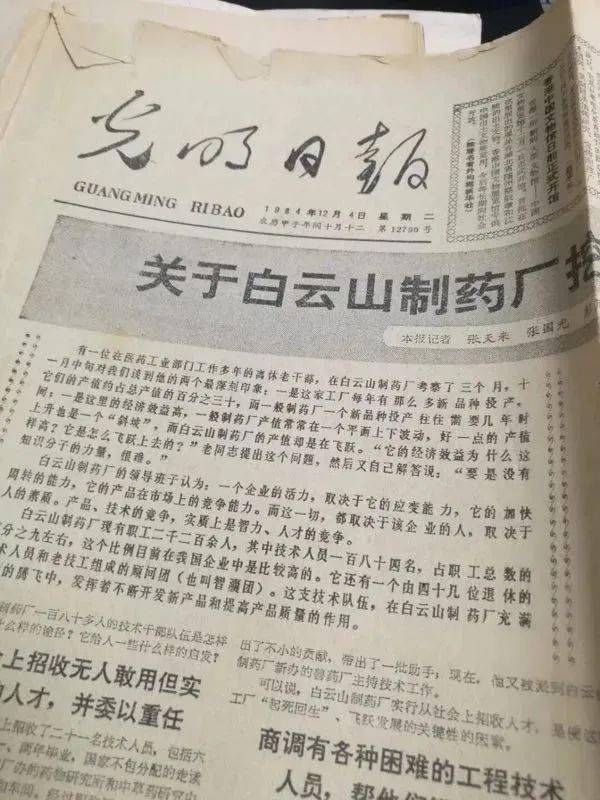 光明日报
GUANGMING RIBAO
1984年12月4日 星期二
农历甲子年闰十月十二 第12790号
香港中国文物馆日前正式开馆
关于白云山制药厂
本报记者 张天来 张国光
有一位在医药工业部门工作多年的离休老干部，在白云山制药厂考察了三个月，十
一月中旬对我们谈到他的两个最深刻印象：一是这家工厂每年有那么多新品种投产，
它们的产值约占总产值的百分之三十，而一般制药厂一个新品种投产往往需要几年时
间；一是这里的经济效益高，一般制药厂产值常常在一个平面上下波动，好一点的产值
上升也是一个“斜坡”，而白云山制药厂的产值却是在飞跃。“它的经济效益为什么这
样高？它是怎么飞跃上去的？”老同志提出这个问题，然后又自己解答说：“要是没有
知识分子的力量，很难。”
白云山制药厂的领导班子认为：一个企业的活力，取决于它的应变能力，它的加快
周转的能力，它的产品在市场上的竞争能力。而这一切，都取决于该企业的人，取决于
人的素质。产品、技术的竞争，实质上是智力、人才的竞争。
白云山制药厂现有职工二千二百余人，其中技术人员一百八十四名，占职工总数的
百分之九左右，这个比例目前在我国企业中是比较高的。它还有一个由四十九位退休的
术人员和老技工组成的顾问团（也叫智囊团）。这支技术队伍，在白云山制药厂充满
的腾飞中，发挥着不断开发新产品和提高产品质量的作用。
制药厂一百八十多人的技术干部队伍是怎样
什么样的途径？它给人一些什么样的启发？
上招收无人敢用但实
人才，并委以重任
上招收了二十一名技术人员，包括六
、两年毕业，国家不包分配的走读
厂办的药物研究所和中草药研究中
出了不小的贡献，带出了一批助手；现在，他又被派到白云
制药厂新办的兽药厂主持技术工作。
可以说，白云山制药厂实行从社会上招收人才，是使这
工厂“起死回生”、飞跃发展的关键性的因素。
商调有各种困难的工程技术
人员，帮他们